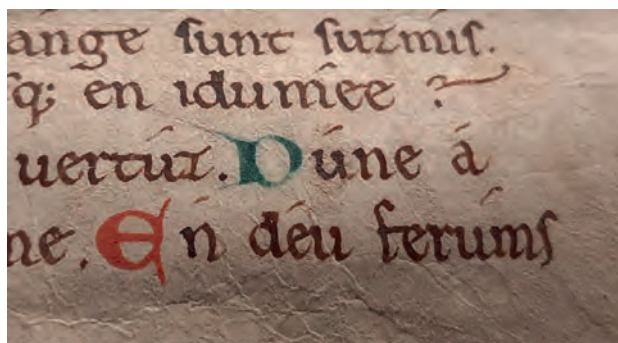 ange sunt suzmis.
sq; en idumee ?
uertúz. Dúne á
ne. En déu ferúms